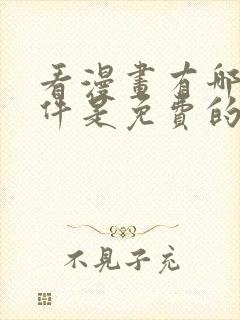 看漫畫有哪
件是免費的
不見子充